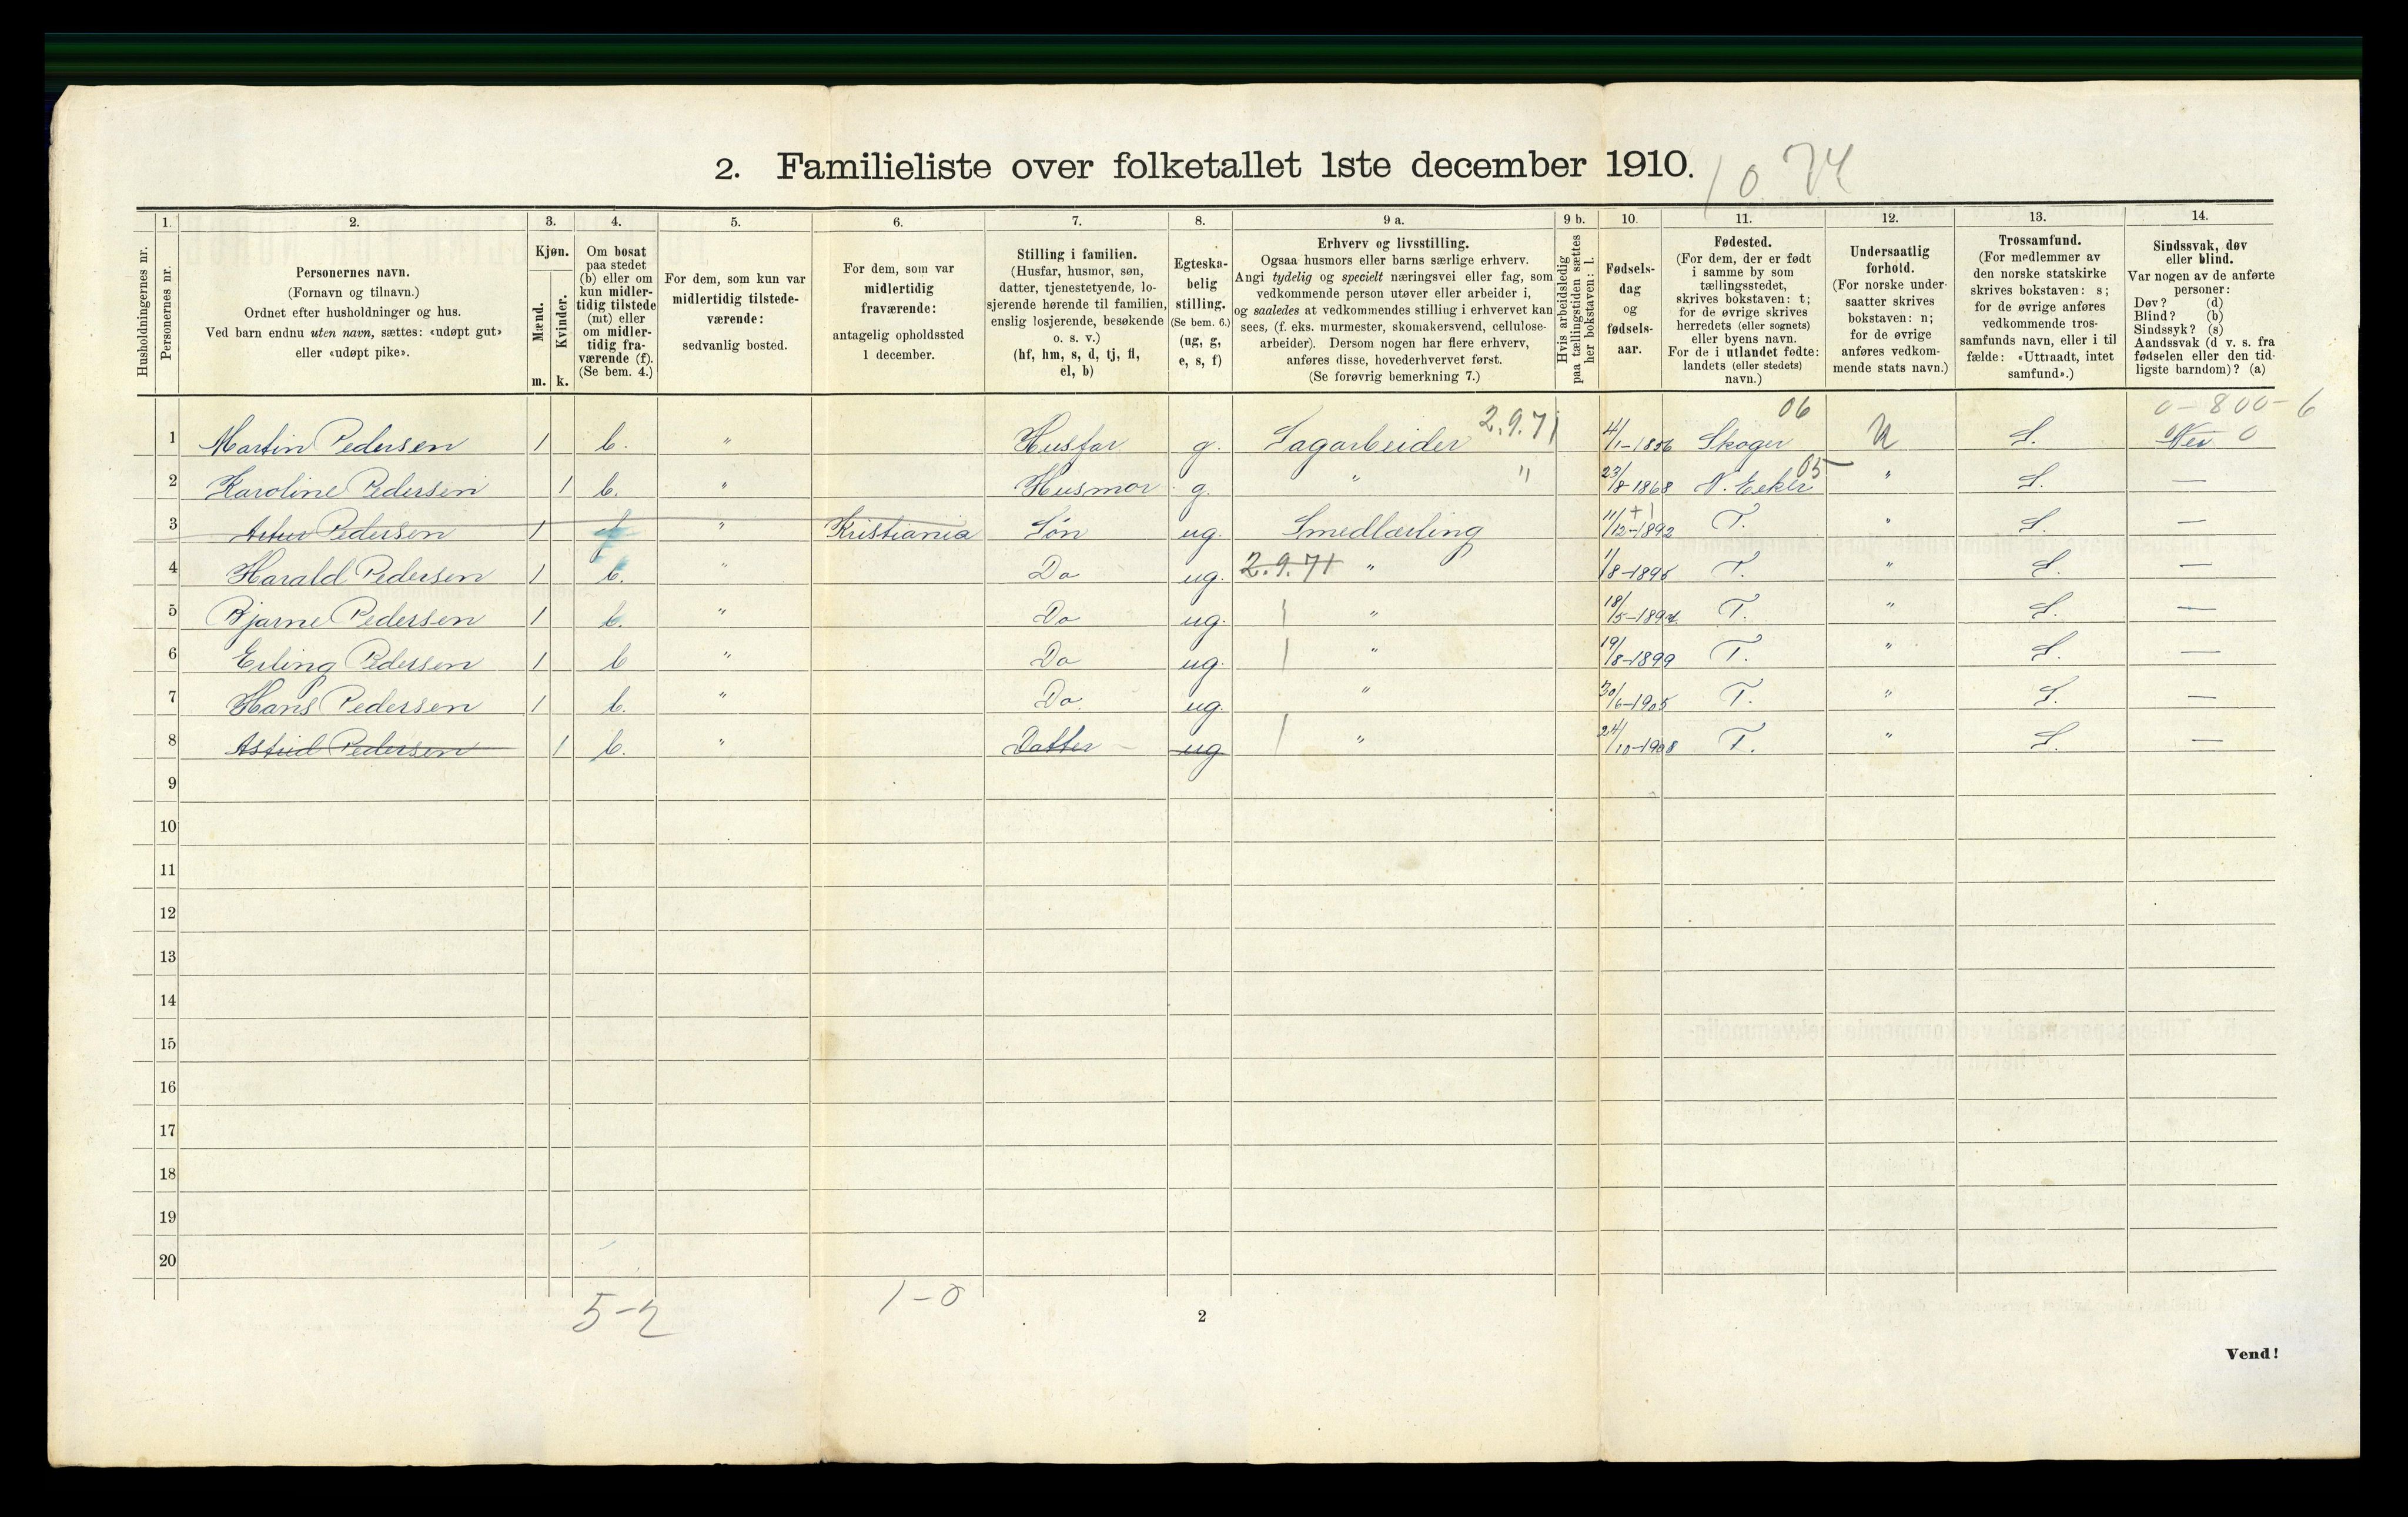 2. Familieliste over folketallet 1ste december 1910.
10 74
Husholdningernes nr.
1.
Personernes nr.
2.
Personernes navn.
(Fornavn og tilnavn.)
Ordnet efter husholdninger og hus.
Ved barn endnu uten navn, sættes: «udøpt gut»
eller «udøpt pike».
3.
Kjøn.
Mænd.
Kvinder.
m. k.
4.
Om bosat
paa stedet
(b) eller om
kun midler-
tidig tilstede
(mt) eller
om midler-
tidig fra-
værende (f).
(Se bem. 4.)
5.
For dem, som kun var
midlertidig tilstede-
værende:
sedvanlig bosted.
6.
For dem, som var
midlertidig
fraværende:
antagelig opholdssted
1 december.
7.
Stilling i familien.
(Husfar, husmor, søn,
datter, tjenestetyende, lo-
sjerende hørende til familien,
enslig losjerende, besøkende
o. s. v.)
(hf, hm, s, d, tj, fl,
el, b)
8.
Egteska-
belig
stilling.
(Se bem. 6.)
(ug, g,
e, s, f)
9 a.
Erhverv og livsstilling.
Ogsaa husmors eller barns særlige erhverv.
Angi tydelig og specielt næringsvei eller fag, som
vedkommende person utøver eller arbeider i,
og saaledes at vedkommendes stilling i erhvervet kan
sees, (f. eks. murmester, skomakersvend, cellulose-
arbeider). Dersom nogen har flere erhverv,
anføres disse, hovederhvervet først.
(Se forøvrig bemerkning 7.)
9 b.
Hvis arbeidsledig
paa tællingstiden sættes
her bokstaven: l.
10.
Fødsels-
dag
og
fødsels-
aar.
11.
Fødested.
(For dem, der er født
i samme by som
tællingsstedet,
skrives bokstaven: t;
for de øvrige skrives
herredets (eller sognets)
eller byens navn.
For de i utlandet fødte:
landets (eller stedets)
navn.)
12.
Undersaatlig
forhold.
(For norske under-
saatter skrives
bokstaven: n;
for de øvrige
anføres vedkom-
mende stats navn.)
13.
Trossamfund.
(For medlemmer av
den norske statskirke
skrives bokstaven: s;
for de øvrige anføres
vedkommende tros-
samfunds navn, eller i til
fælde: «Uttraadt, intet
samfund».)
14.
Sindssvak, døv
eller blind.
Var nogen av de anførte
personer:
Døv? (d)
Blind? (b)
Sindssyk? (s)
Aandssvak (d. v. s. fra
fødselen eller den tid-
ligste barndom)? (a)
06 0-800-6
1 Martin Pedersen 1 b. " Husfar g. Sagarbeider 2.9.71 4/1-1856 Skoger N S. Nei 0
2 Karoline Pedersen 1 b. " Husmor g. " " 23/8-1868 N. Eeker 05 " S. —
3 Artur Pedersen 1 f " Kristiania Søn ug. Smedlærling 11/12-1892 T. " S. —
4 Harald Pedersen 1 b. " Do ug. 2.9.71 " 1/8-1895 T. " S. —
5 Bjarne Pedersen 1 b. " Do ug. " 18/5-1897 T. " S. —
6 Erling Pedersen 1 b " Do ug. " 19/8-1899 T. " S. —
7 Hans Pedersen 1 b. " Do. ug. " 30/6-1905 T. " S. —
8 Astrid Pedersen 1 b. " Datter ug " 24/10-1908 T. " S. —
9
10
11
12
13
14
15
16
17
18
19
20
5-2
1-0
2
Vend!